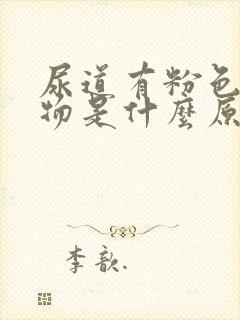 尿道有粉色
物是什麼原
李歆.